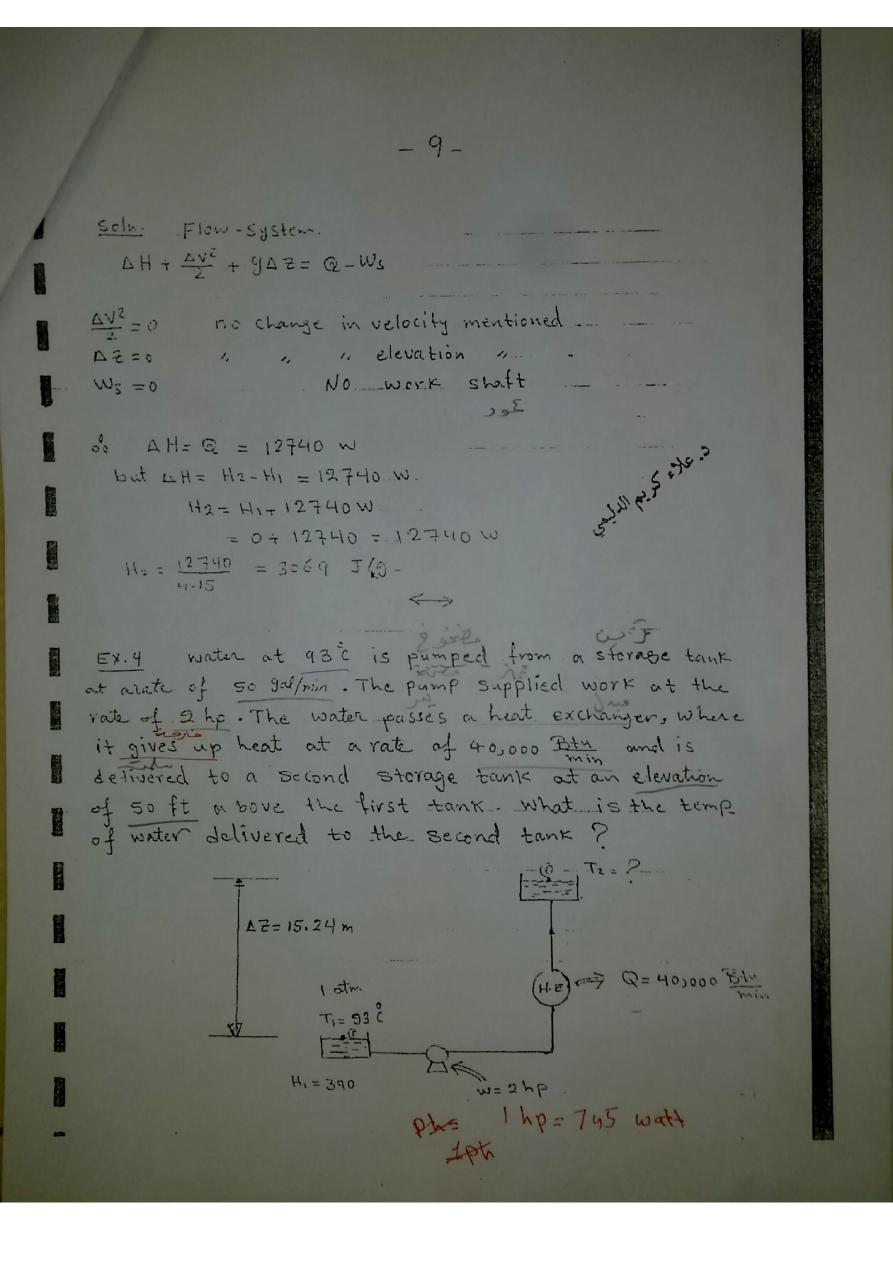 - 9 -
Soln. Flow-System.
ΔH + ΔV²/2 + gΔZ = Q - Ws
ΔV²/2 = 0 no change in velocity mentioned
ΔZ = 0 " " " elevation "
Ws = 0 No work shaft
∴ ΔH = Q = 12740 W
but ΔH = H2 - H1 = 12740 W.
H2 = H1 + 12740 W
= 0 + 12740 = 12740 W
د. علاء كريم الدليمي
H2 = 12740/4.15 = 3069 J/g
Ex.4 water at 93°C is pumped from a storage tank
at a rate of 50 gal/min. The pump supplied work at the
rate of 2 hp. The water passes a heat exchanger, where
it gives up heat at a rate of 40,000 Btu/min and is
delivered to a second storage tank at an elevation
of 50 ft above the first tank. What is the temp
of water delivered to the second tank ?
T2 = ?
ΔZ = 15.24 m
H.E
Q = 40,000 Btu/min
1 atm.
T1 = 93°C
H1 = 390
w = 2 hp
1 hp = 745 watt